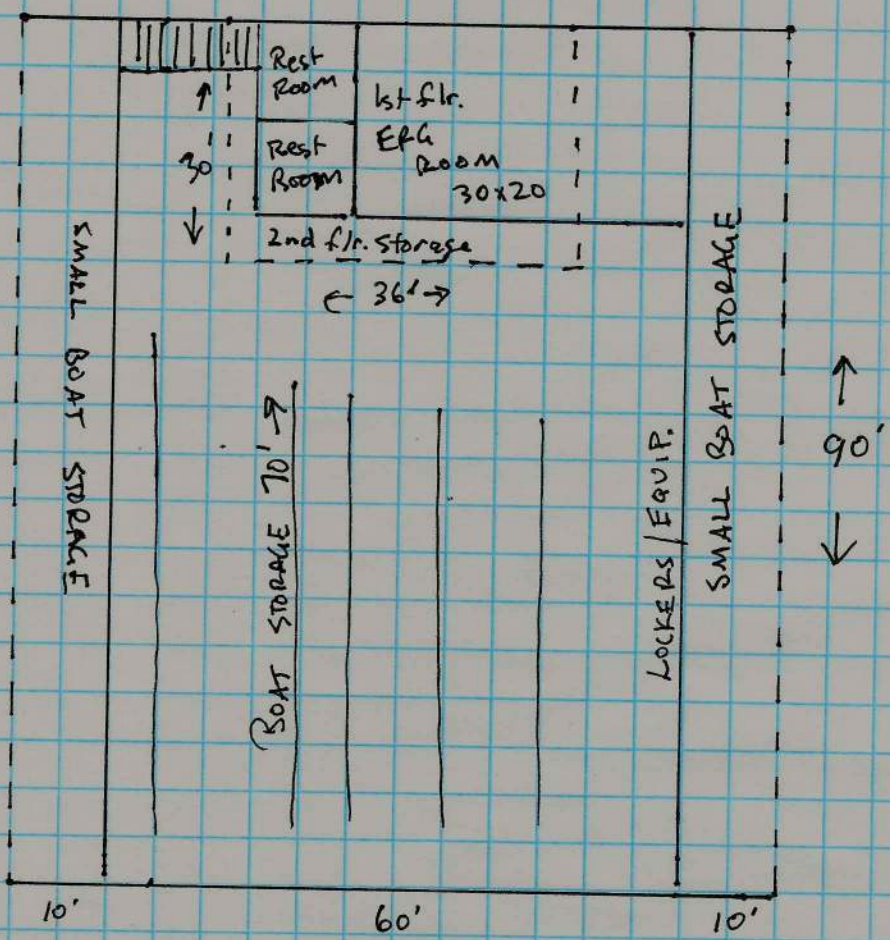 Rest
Room
1st flr.
ERG
ROOM
30x20
30'
Rest
Room
2nd flr. storage
36'
SMALL BOAT STORAGE
BOAT STORAGE 70'
LOCKERS/EQUIP.
SMALL BOAT STORAGE
90'
10'
60'
10'